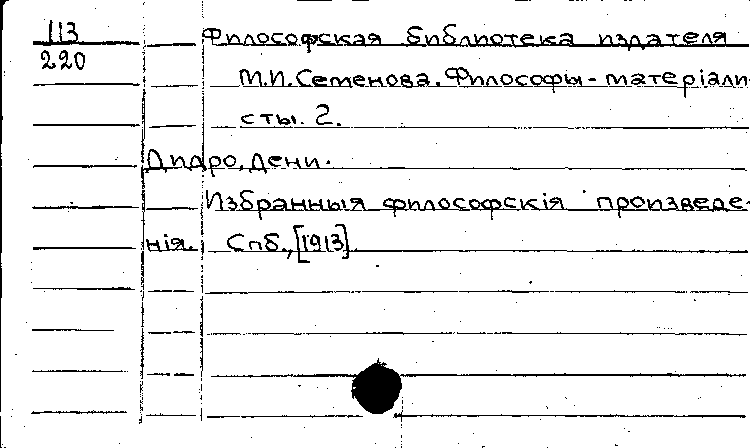 113
220
Философская библиотека издателя
М.И.Семенова. Философы-матеріали
сты. 2.
Дидро, Дени.
Избранныя философскія произведе-
нія. Спб., [1913]